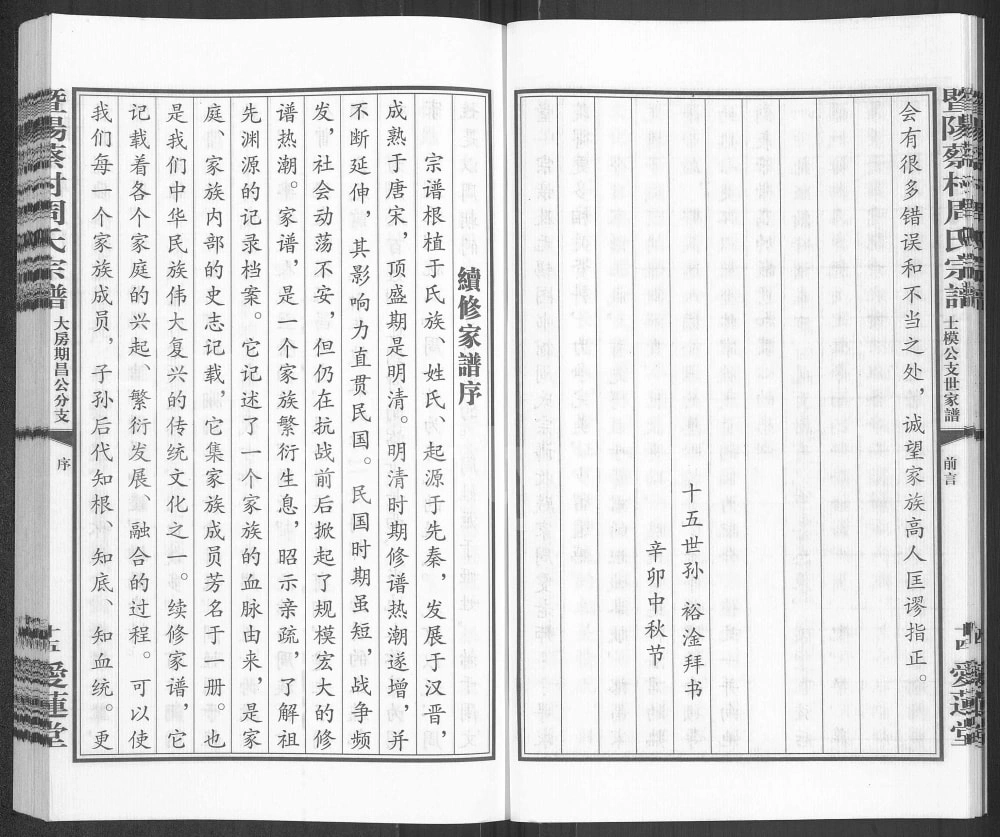 暨陽蔡村周氏宗譜
士模公支世家譜
前言
十四
愛蓮堂
会有很多错误和不当之处，诚望家族高人匡谬指正。
十五世孙 裕淦拜书
辛卯中秋节
續修家譜序
宗谱根植于氏族、姓氏、起源于先秦，发展于汉晋，
成熟于唐宋，顶盛期是明清。明清时期修谱热潮遂增，并
不断延伸，其影响力直贯民国。民国时期虽短，战争频
发，社会动荡不安，但仍在抗战前后掀起了规模宏大的修
谱热潮。家谱，是一个家族繁衍生息，昭示亲疏，了解祖
先渊源的记录档案。它记述了一个家族的血脉由来，是家
庭、家族内部的史志记载，它集家族成员芳名于一册。也
是我们中华民族伟大复兴的传统文化之一。续修家谱，它
记载着各个家庭的兴起、繁衍发展、融合的过程。可以使
我们每一个家族成员，子孙后代知根、知底、知血统。更
暨陽蔡村周氏宗譜
大房期昌公分支
序
十五
愛蓮堂